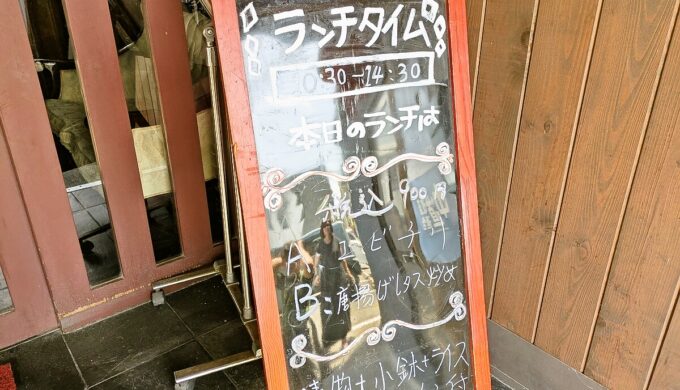 ランチタイム
10:30-14:30
本日のランチは
税込 900円
A: エビチリ
B: 唐揚げレタス炒め
漬物+小鉢+ライス